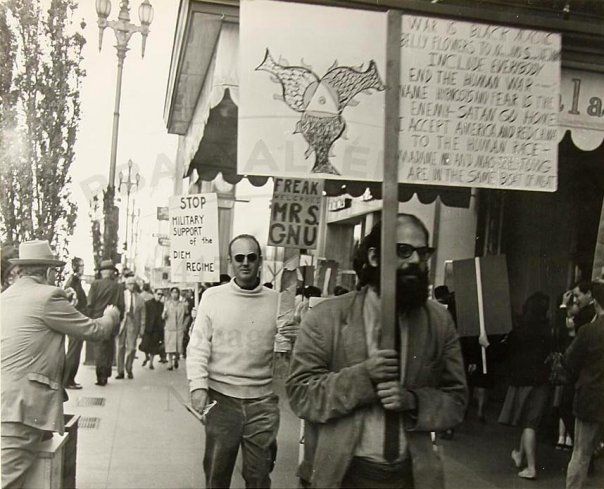 WAR IS BLACK MAGIC
BELLY FLOWERS TO
INCLUDE EVERYBODY
END THE HUMAN WAR —
NAME HYPNOSIS AND FEAR IS THE
ENEMY–SATAN GO HOME!
I ACCEPT AMERICA AND RED CHINA
TO THE HUMAN RACE –
MADAME NHU AND MAO TSE-TUNG
ARE IN THE SAME BOAT OF MEAT
STOP
MILITARY
SUPPORT
of the
DIEM
REGIME
FREAK
MRS
GNU